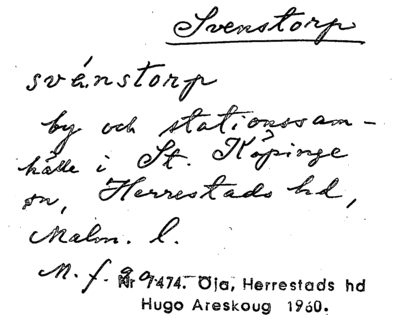 Svenstorp
svénstorp
by och stationssam-
hälle i St. Köpinge
sn, Herrestads hd,
Malm. l.
M. f.
Nr 7474. Öja, Herrestads hd
Hugo Areskoug 1960.